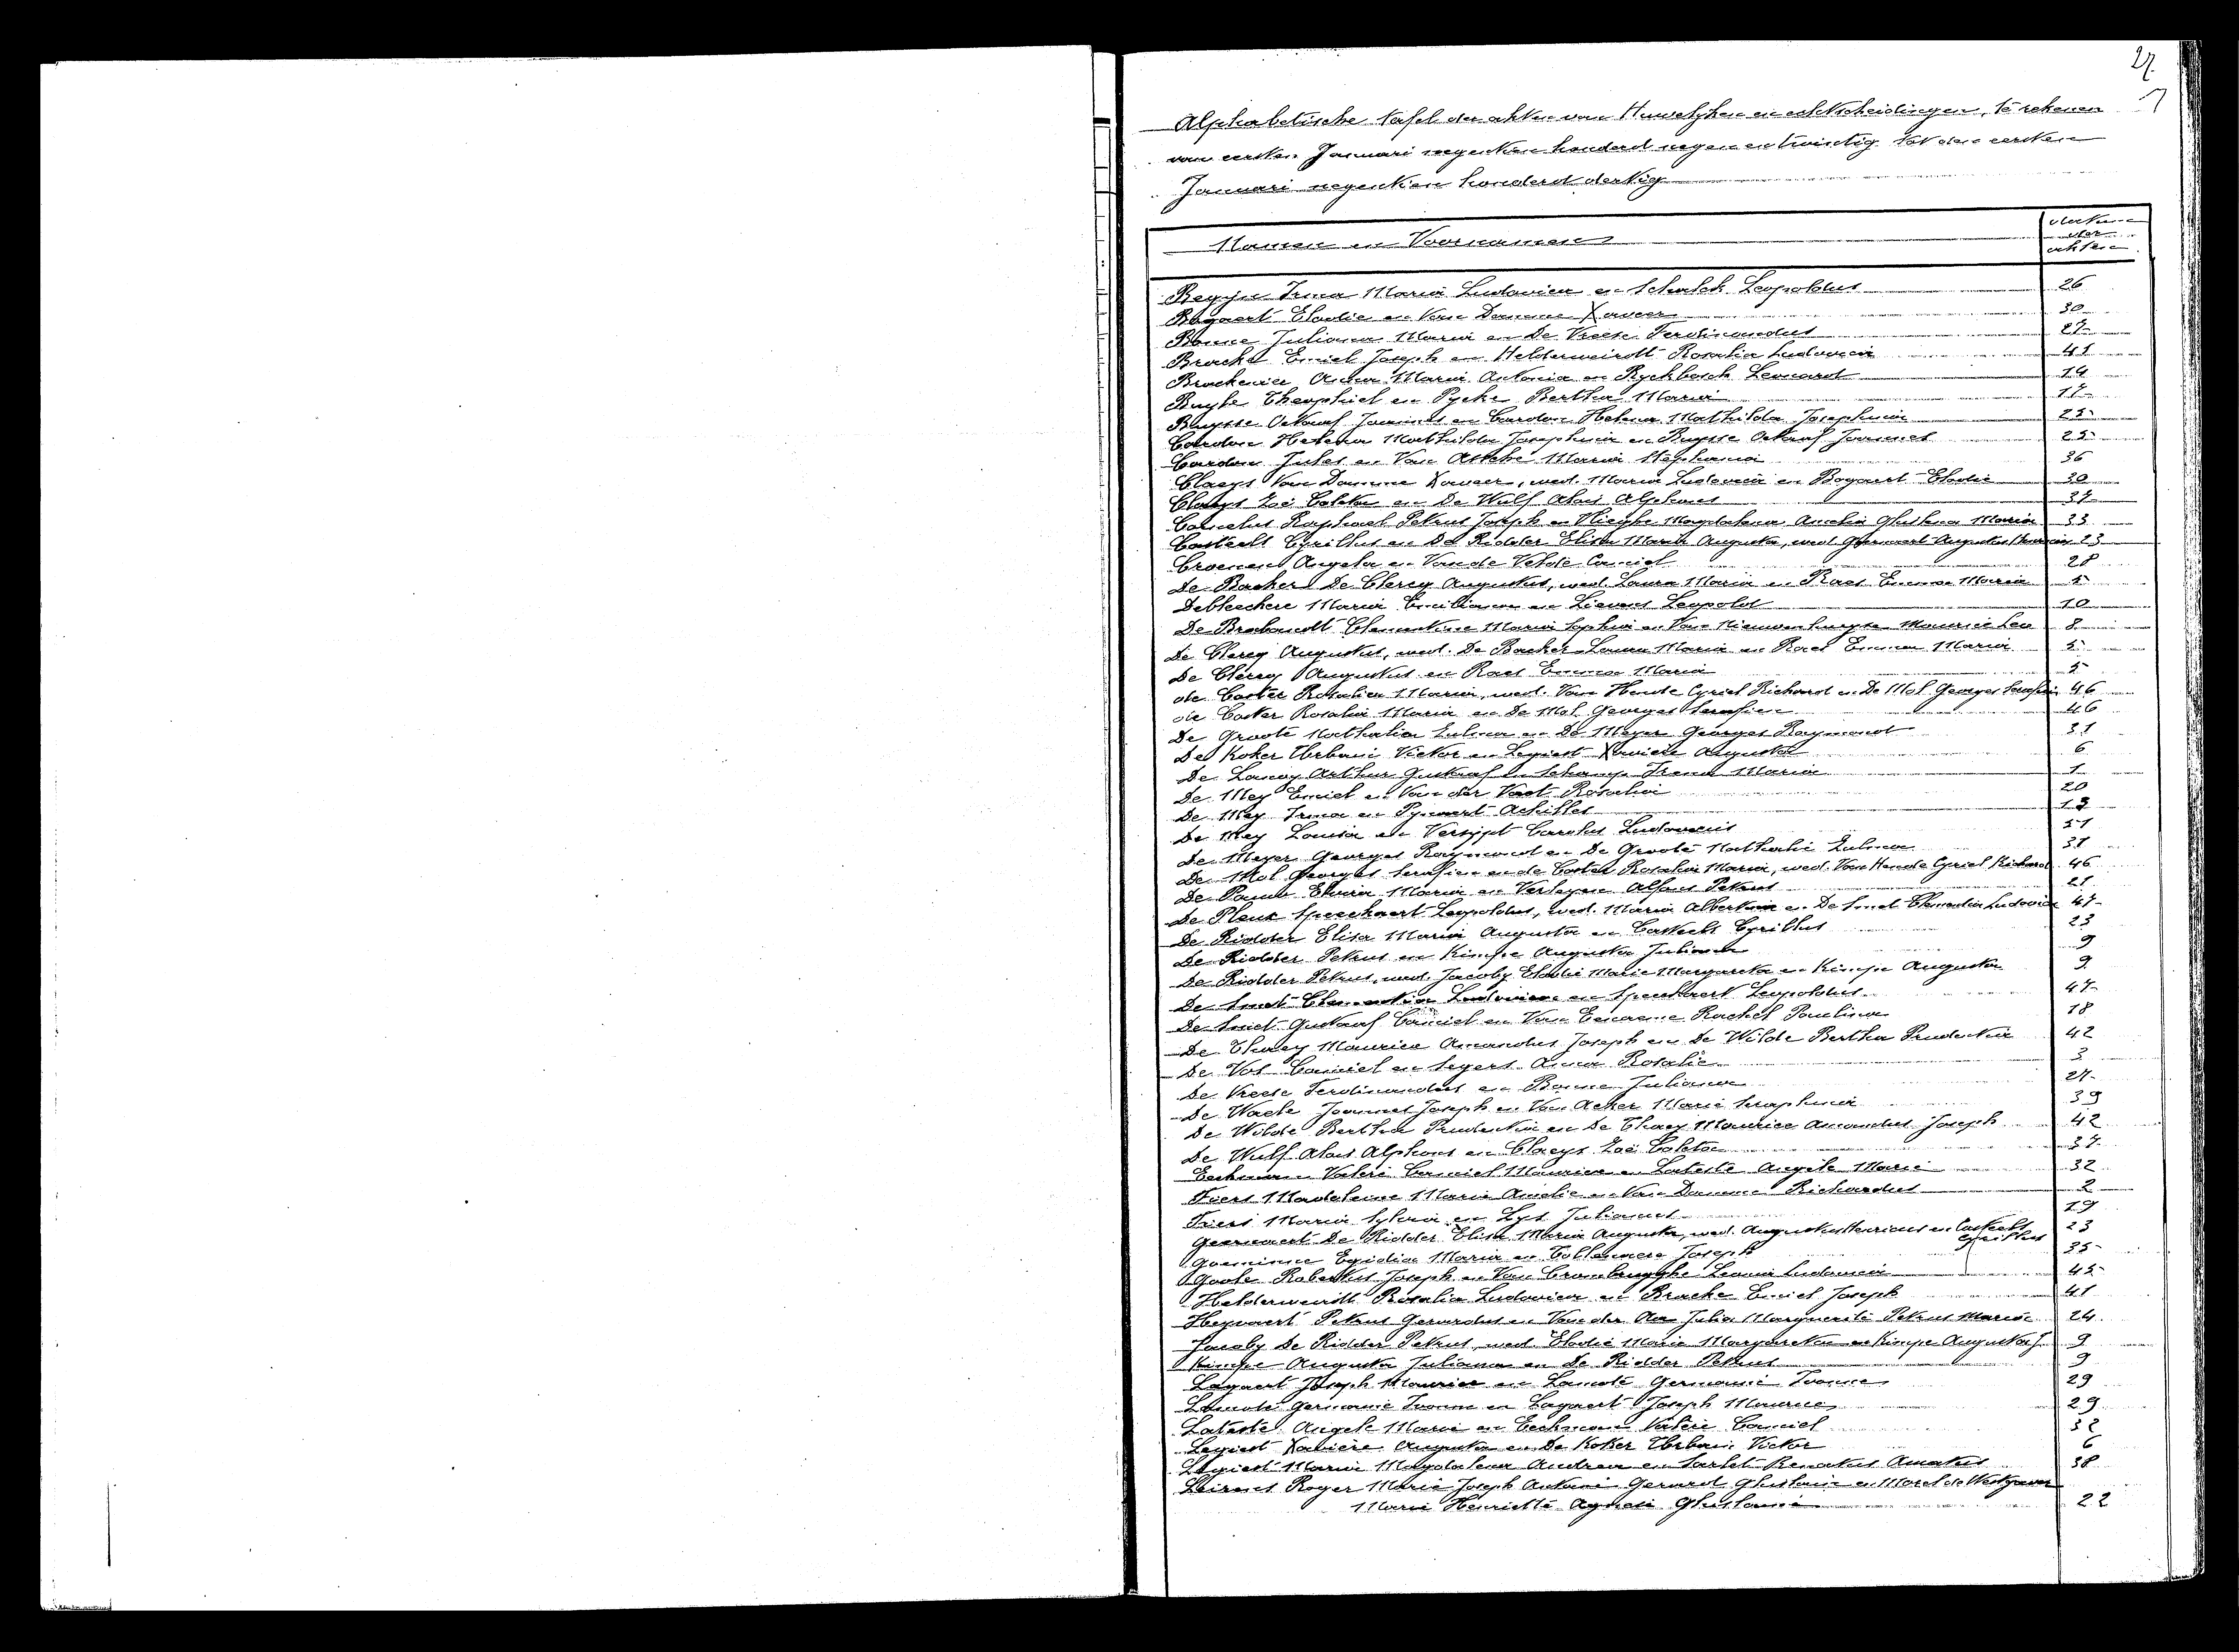 27
Alphabetische tafel der akten van Huwelijken en echtscheidingen, te rekenen
van eersten Januari negentien honderd negen en twintig tot den eersten
Januari negentien honderd dertig
Namen en Voornamen
der
akten
Irma Maria Ludovica en Schalck Leopoldus 26
Bogaert Elodie en Van Damme Xaveer 30
Bonne Juliana Maria en De Vreese Ferdinandus 27
Bracke Emiel Joseph en Helderweirdt Rosalia Ludovica 41
Anna Maria Antonia en Rychbosch Leonard 14
Buyse Theophiel en Pycke Bertha Maria 17
Buysse Octaaf Joannes en Cardon Helena Mathilda Josephina 25
Cardon Helena Mathilda Josephina en Buysse Octaaf Joannes 25
Cardon Jules en Van Assche Maria Stephania 36
Claeys Van Damme Xaveer, wed. Maria Ludovica en Bogaert Elodie 30
Claeys Zoë Coleta en De Wulf Aloïs Alphons 37
Cornelus Raphael Petrus Joseph en Vlieghe Magdalena Amelia Ghislena Maria 33
Casteels Cyrillus en De Ridder Elisa Maria Augusta, wed Geernaert Augustus 23
Croenens Angela en Van de Velde Camiel 28
De Backer De Clercq Augustus, wed. Laura Maria en Raes Emma Maria 5
Debleeckere Maria Emiliana en Lievens Leopold 10
De Brabandt Clementine Maria Sophia en Van Nieuwenhuyse Maurice Leo 8
De Clercq Augustus, wed. De Backer Laura Maria en Raes Emma Maria 5
De Clercq Augustus en Raes Emma Maria 5
de Coster Rosalia Maria, wed. Van Hende Cyriel Richard en De Mol Georges Serafien 46
de Coster Rosalia Maria en De Mol Georges Serafien 46
De Groote Nathalia Zulma en De Meyer Georges Raymond 31
De Koker Urbain Victor en Legiest Xaviere Augusta 6
De Lanoy Arthur Gustaaf en Schamp Irena Maria 1
De Mey Emiel en Van der Vaet Rosalia 20
De Mey Irma en Pynaert Achilles 13
De Mey Louisa en Versypt Carolus Ludovicus 51
De Meyer Georges Raymond en De Groote Nathalie Zulma 31
De Mol Georges Serafien en de Coster Rosalia Maria, wed. Van Hende Cyriel Richard 46
De Pauw Elvira Maria en Verleyen Alfons Petrus 21
De Pleux Speeckaert Leopoldus, wed. Maria Albertina en De Smet Clementia Ludovica 47
De Ridder Elisa Maria Augusta en Casteels Cyrillus 23
De Ridder Petrus en Kimpe Augusta Juliana 9
De Ridder Petrus, wed. Jacoby Elodie Marie Margareta en Kimpe Augusta 9
De Smet Clementia Ludovica en Speeckaert Leopoldus 47
De Smet Gustaaf Camiel en Van Eenaeme Rachel Paulina 18
De Thaey Maurice Amandus Joseph en De Wilde Bertha Prudentia 42
De Vos Camiel en Segers Anna Rosalie 3
De Vreese Ferdinandus en Bonne Juliana 27
De Waele Joannes Joseph en Van Acker Maria Seraphina 39
De Wilde Bertha Prudentia en De Thaey Maurice Amandus Joseph 42
De Wulf Aloïs Alphons en Claeys Zoë Coleta 37
Eeckman Valère Camiel Maurice en Lateste Angèle Marie 32
Fiers Madeleine Maria Amelie en Van Damme Richardus 2
Fiers Maria Sylvia en Lys Julianus 19
Geernaert De Ridder Elisa Maria Augusta, wed. Augustus Henricus en Casteels Cyrillus 23
Goeminne Egidia Maria en Joseph 35
Goole Robertus Joseph en Van Crombrugghe Leonia Ludovica 45
Helderweirdt Rosalia Ludovica en Bracke Emiel Joseph 41
Petrus Gerardus en Van der Aa Julia Marguerite Petrus Maria 24
Jacoby De Ridder Petrus, wed. Elodie Marie Margareta en Kimpe Augusta J 9
Kimpe Augusta Juliana en De Ridder Petrus 9
Lagaert Joseph Maurice en Lamote Germanie Ivonne 29
Lamote Germanie Ivonne en Lagaert Joseph Maurice 29
Lateste Angèle Marie en Eeckman Valère Camiel 32
Legiest Xaviere Augusta en De Koker Urbain Victor 6
Legiest Maria Magdalena Andrea en Sarlet Renatus Amatus 38
Roger Marie Joseph Antoine Gerard Ghislain en Morel de Westgaver
Marie Henriette Agnes Ghislaine 22